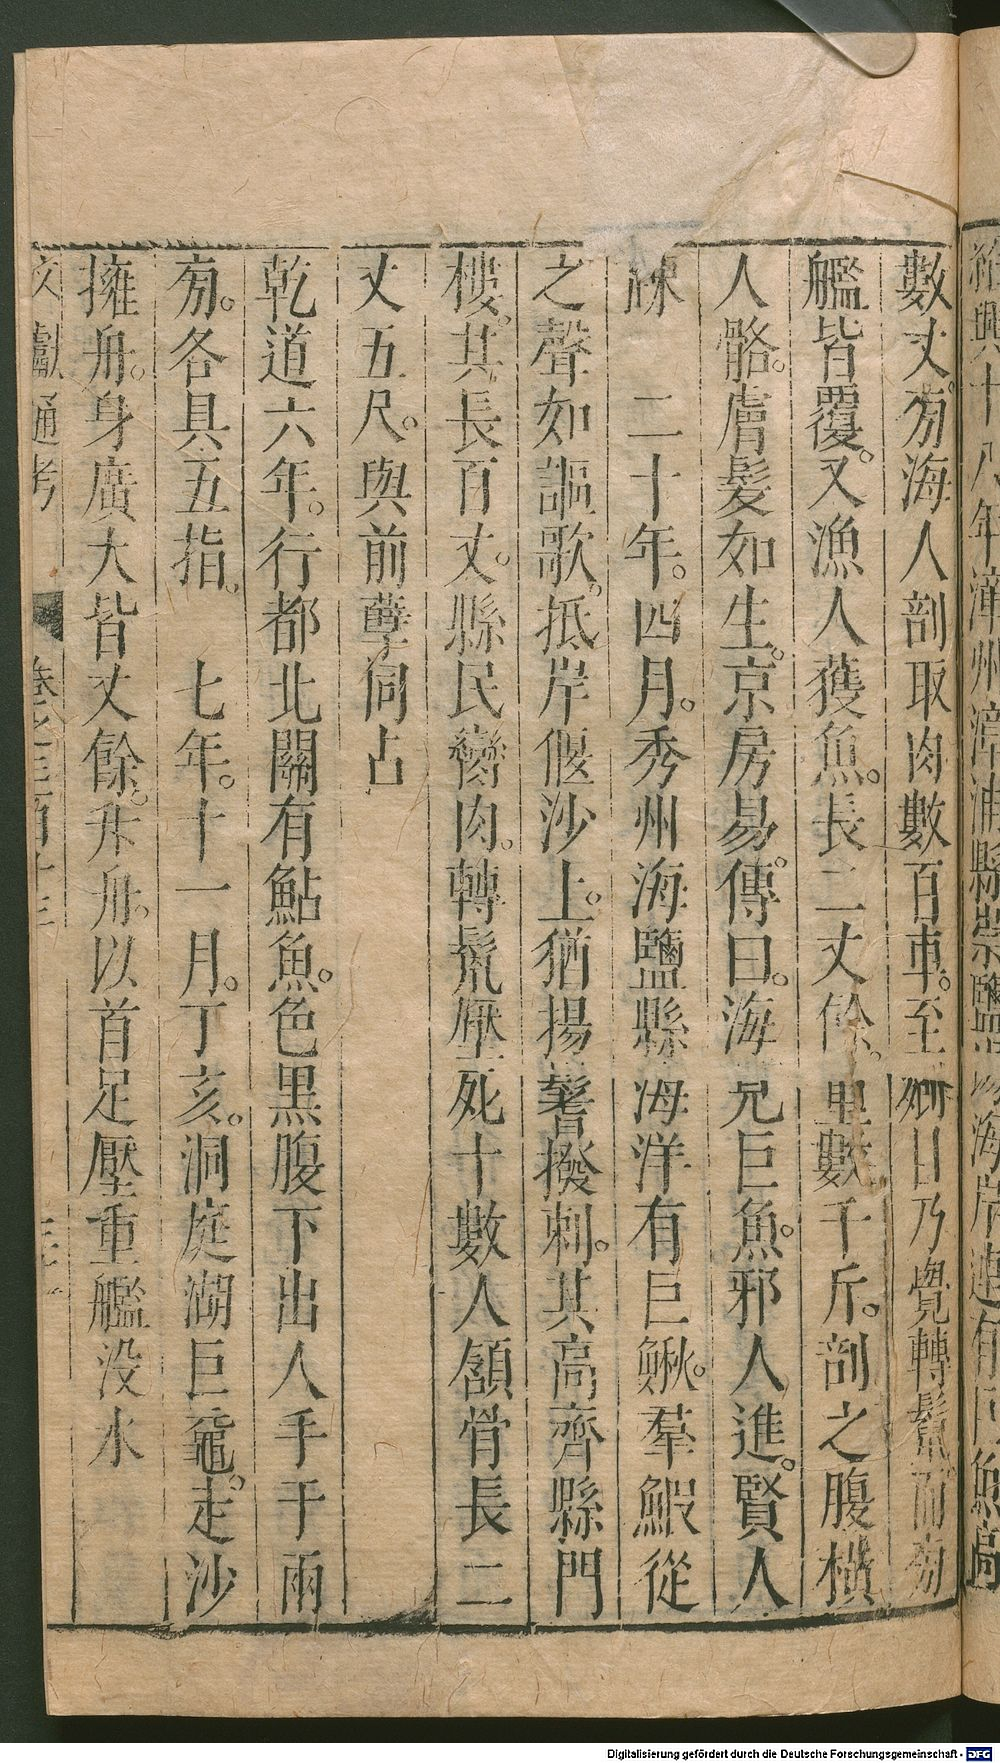 紹興十八年漳州漳浦縣崇
數丈。旁海人剖取肉數百車。至
目乃覺轉鬣而旁
艦皆覆。又漁人獲魚。長二丈餘。
數千斤。剖之腹橫
人骼。膚髮如生。京房易傳曰。海
見巨魚。邪人進。賢人
疎 二十年。四月。秀州海鹽縣海洋有巨鰍。羣鰕從
之聲如謳歌。抵岸偃沙上。猶揚鬐撥刺。其高齊縣門
樓。其長百丈。縣民臠肉。轉鬣壓死十數人。頷骨長二
丈五尺。與前孽同占
乾道六年。行都北關有鮎魚。色黑腹下出人手于兩
旁。各具五指。 七年。十一月。丁亥。洞庭湖巨黿。走沙
擁舟。身廣大皆丈餘。升舟。以首足壓重艦没水
文獻通考 卷之三百十三
Digitalisierung gefördert durch die Deutsche Forschungsgemeinschaft - DFG